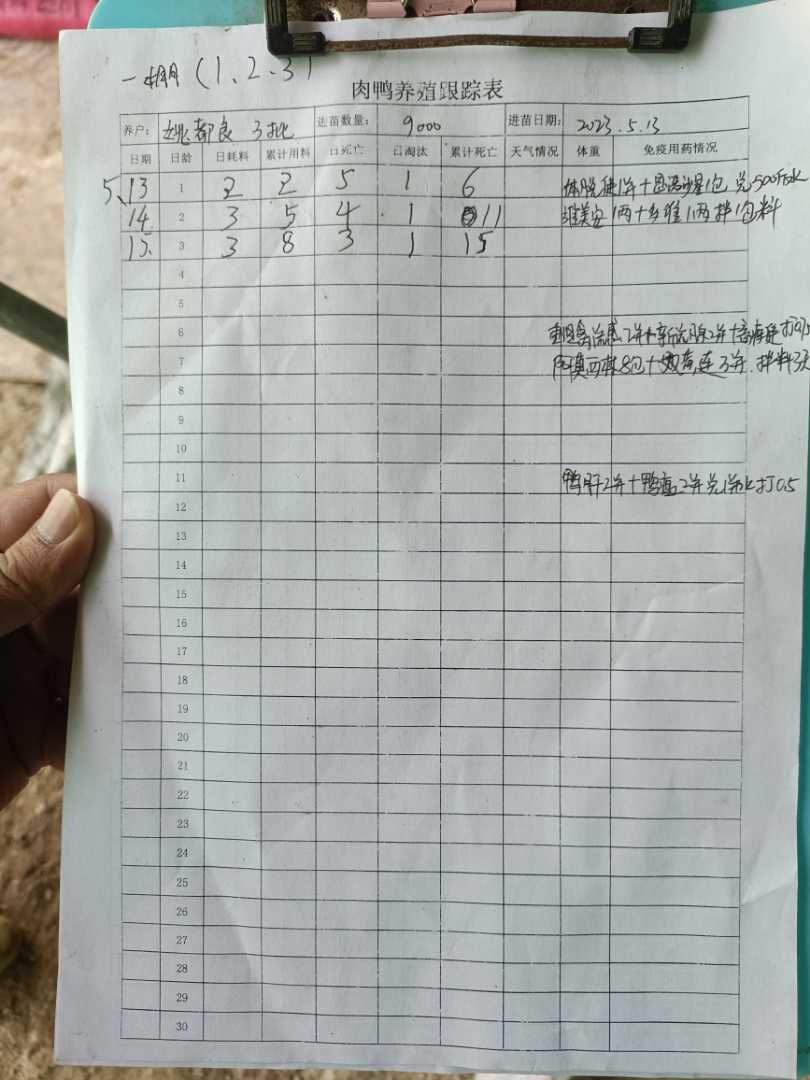 一棚 (1、2、3)
肉鸭养殖跟踪表
养户: 姚都良 3批 进苗数量: 9000 进苗日期: 2023.5.13
日期 日龄 日耗料 累计用料 日死亡 日淘汰 累计死亡 天气情况 体重 免疫用药情况
5.13 1 2 2 5 1 6 1包 兑
14. 2 3 5 4 1 11 1两+ 1两 拌1包料
15. 3 3 8 3 1 15
4
5
6 禽流感2瓶+ 2瓶+
7 8包+ 3瓶. 拌料3天
8
9
10
11 鸭肝2瓶+鸭瘟2瓶兑 打0.5
12
13
14
15
16
17
18
19
20
21
22
23
24
25
26
27
28
29
30